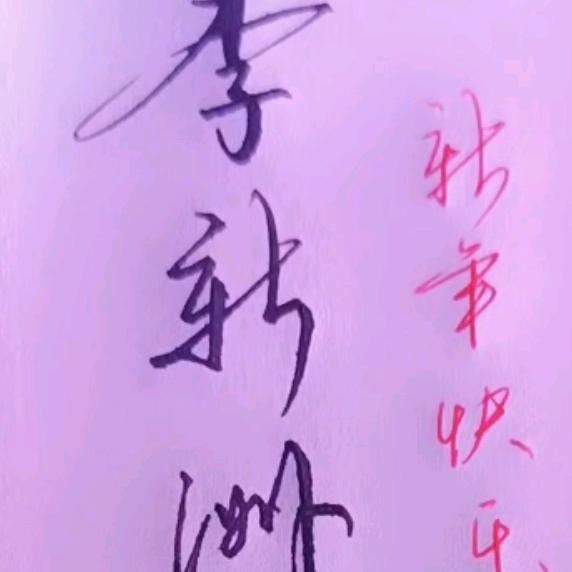 李新洲
新年快乐